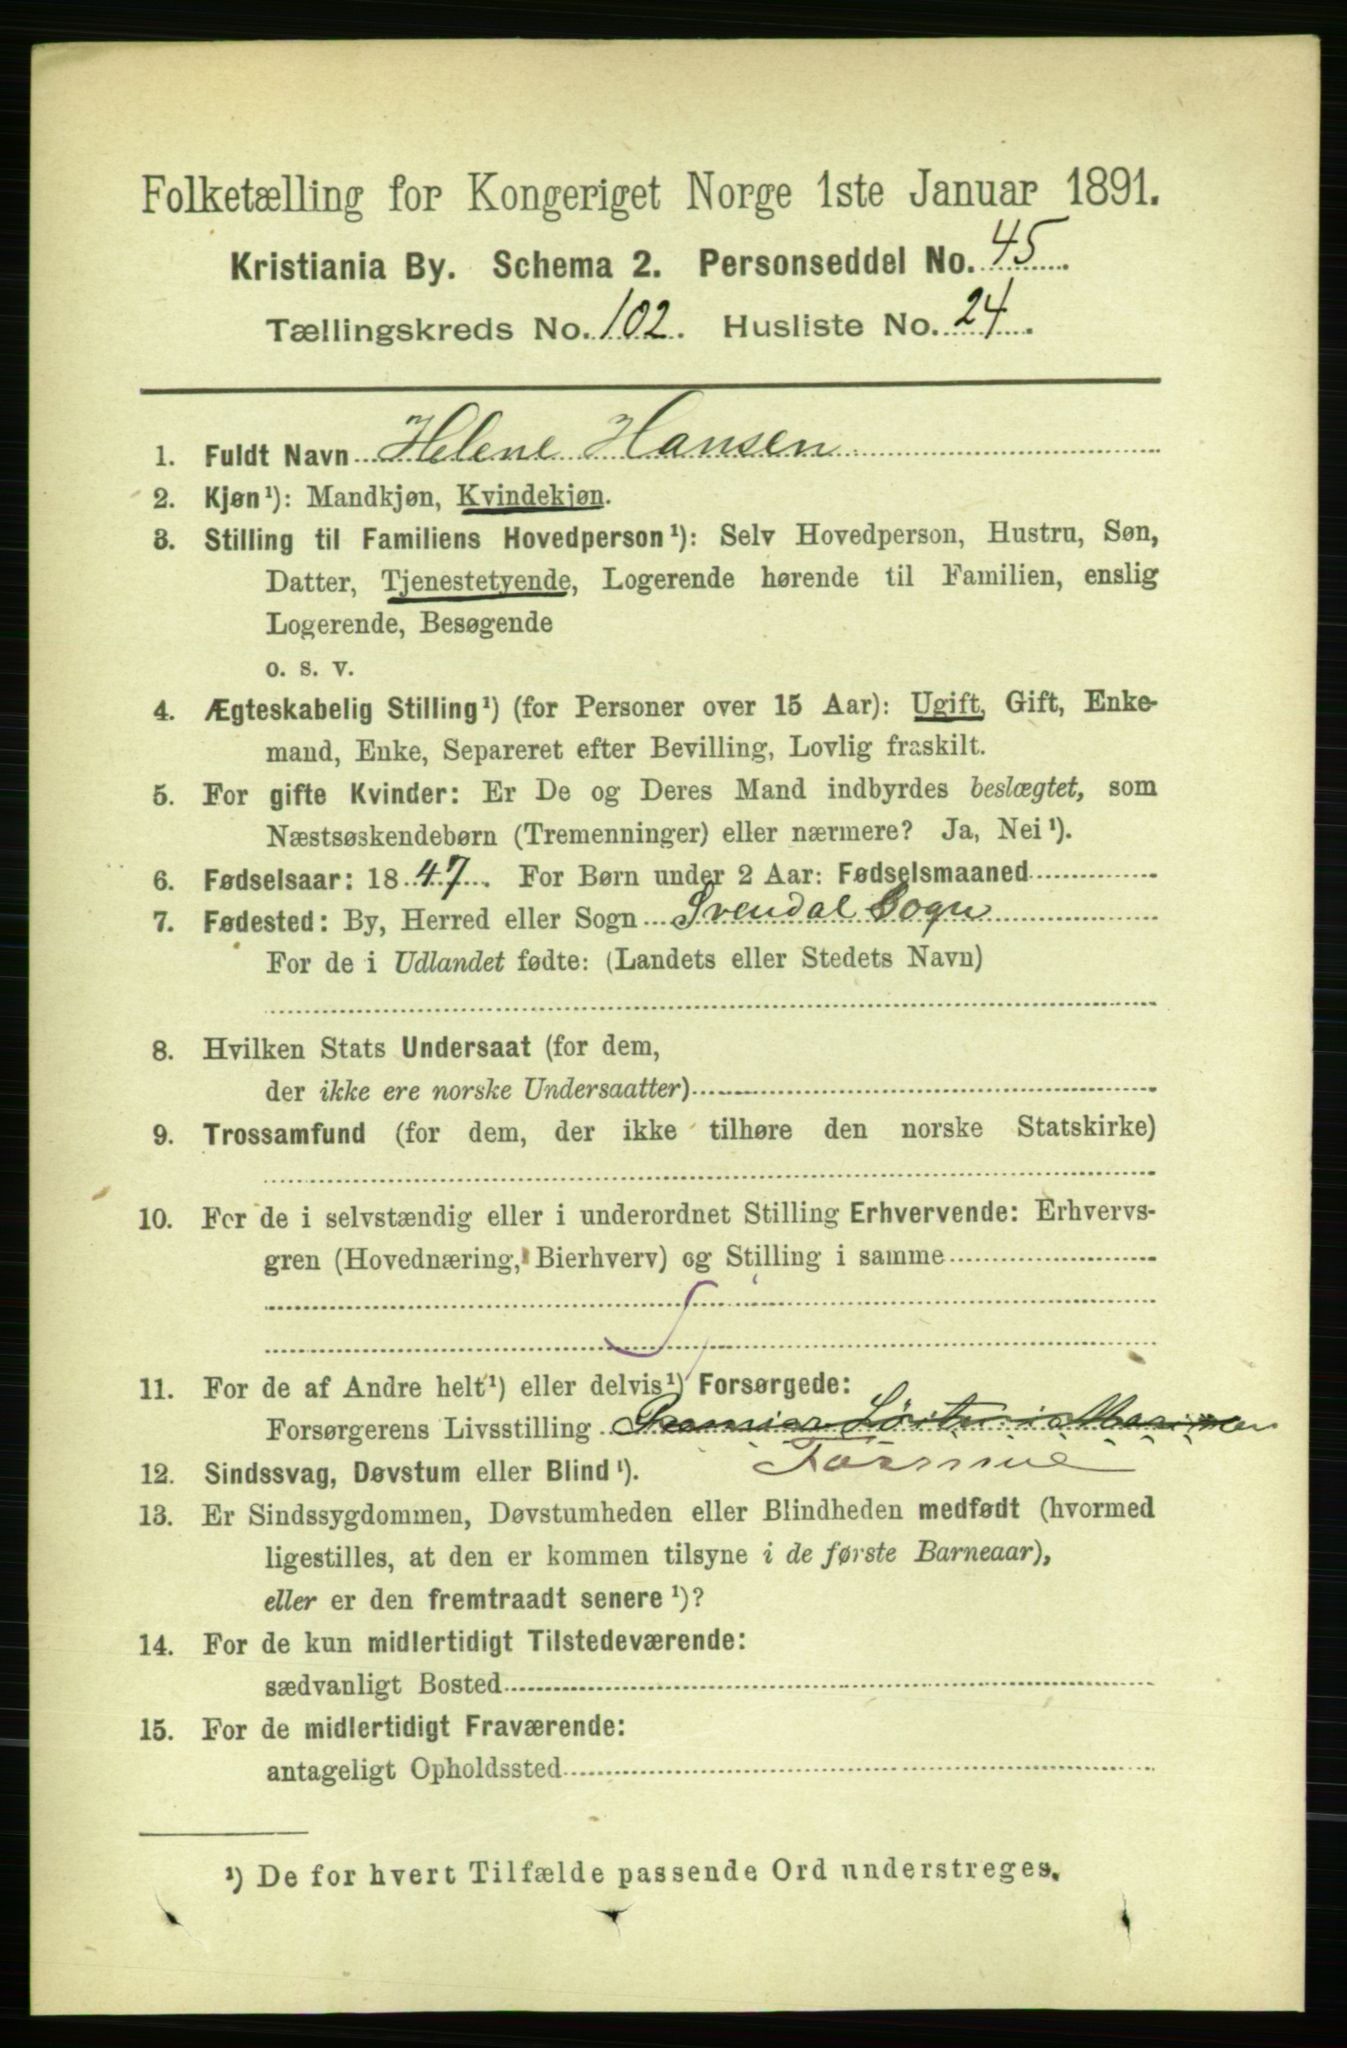 Folketælling for Kongeriget Norge 1ste Januar 1891.
Kristiania By. Schema 2. Personseddel No. 45
Tællingskreds No. 102. Husliste No. 24.
1. Fuldt Navn Helene Hansen
2. Kjøn¹): Mandkjøn, Kvindekjøn.
3. Stilling til Familiens Hovedperson¹): Selv Hovedperson, Hustru, Søn,
Datter, Tjenestetyende, Logerende hørende til Familien, enslig
Logerende, Besøgende
o. s. v.
4. Ægteskabelig Stilling¹) (for Personer over 15 Aar): Ugift, Gift, Enke-
mand, Enke, Separeret efter Bevilling, Lovlig fraskilt.
5. For gifte Kvinder: Er De og Deres Mand indbyrdes beslægtet, som
Næstsøskendebørn (Tremenninger) eller nærmere? Ja, Nei¹).
6. Fødselsaar: 1847. For Børn under 2 Aar: Fødselsmaaned
7. Fødested: By, Herred eller Sogn Svendal Sogn
For de i Udlandet fødte: (Landets eller Stedets Navn)
8. Hvilken Stats Undersaat (for dem,
der ikke ere norske Undersaatter)
9. Trossamfund (for dem, der ikke tilhøre den norske Statskirke)
10. For de i selvstændig eller i underordnet Stilling Erhvervende: Erhvervs-
gren (Hovednæring, Bierhverv) og Stilling i samme
11. For de af Andre helt¹) eller delvis¹) Forsørgede:
Forsørgerens Livsstilling
12. Sindssvag, Døvstum eller Blind¹).
13. Er Sindssygdommen, Døvstumheden eller Blindheden medfødt (hvormed
ligestilles, at den er kommen tilsyne i de første Barneaar),
eller er den fremtraadt senere¹)?
14. For de kun midlertidigt Tilstedeværende:
sædvanligt Bosted
15. For de midlertidigt Fraværende:
antageligt Opholdssted
¹) De for hvert Tilfælde passende Ord understreges.